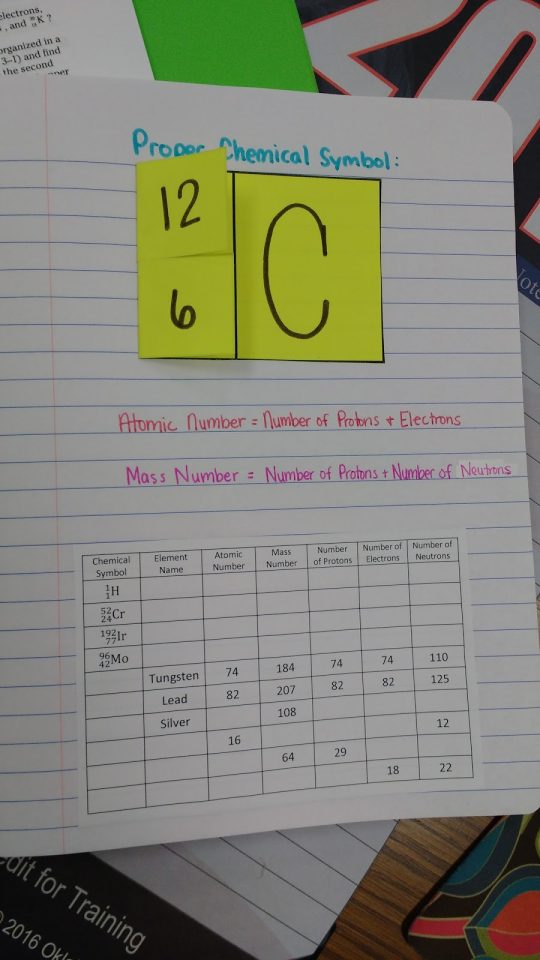 electrons,
, and K ?
organized in a
3–1) and find
the second
Proper Chemical Symbol:
12
6
C
Atomic Number = Number of Protons + Electrons
Mass Number = Number of Protons + Number of Neutrons
Chemical Symbol Element Name Atomic Number Mass Number Number of Protons Number of Electrons Number of Neutrons
¹₁H
⁵²₂₄Cr
¹⁹²₇₇Ir
⁹⁶₄₂Mo
Tungsten 74 184 74 74 110
Lead 82 207 82 82 125
Silver 108
16 12
64 29
18 22
edit for Training
2016